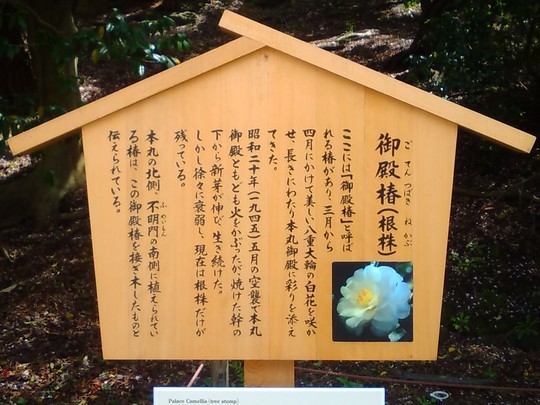 御殿椿(根株)
ごてんつばき ねかぶ
ここには「御殿椿」と呼ば
れる椿があり、三月から
四月にかけて美しい八重大輪の白花を咲か
せ、長きにわたり本丸御殿に彩りを添え
てきた。
昭和二十年(一九四五)五月の空襲で本丸
御殿ともども火をかぶったが焼けた幹の
下から新芽が伸び、生き続けた。
しかし徐々に衰弱し、現在は根株だけが
残っている。
本丸の北側、不明門の南側に植えられてい
ふめいもん
る椿は、この御殿椿を接ぎ木したものと
伝えられている。
Palace Camellia (tree stump)